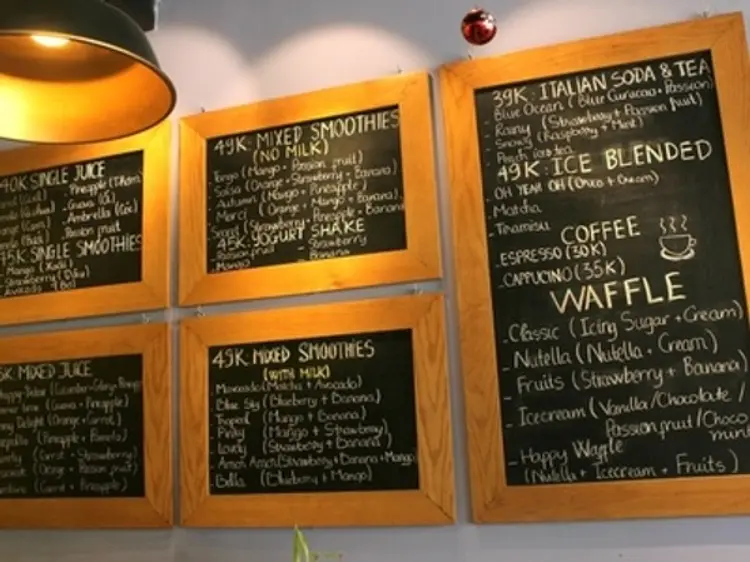 40K SINGLE JUICE
Pineapple (Thơm)
Guava (Ổi)
Ambrella (Cóc)
Passion fruit
45K SINGLE SMOOTHIES
Mango (Xoài)
Strawberry (Dâu)
Avocado (Bơ)
MIXED JUICE
(Guava + Pineapple)
Delight (Orange + Carrot)
(Pineapple + Pomelo)
(Carrot + Strawberry)
(Orange + Passion fruit)
(Carrot + Pineapple)
49K: MIXED SMOOTHIES
(NO MILK)
- Tango (Mango + Passion fruit)
- Salsa (Orange + Strawberry + Banana)
- Autumn (Mango + Pineapple)
- Merci (Orange + Mango + Banana)
(Strawberry + Pineapple + Banana)
45K: YOGURT SHAKE
- Passion fruit - Strawberry
- Mango - Banana
49K: MIXED SMOOTHIES
(WITH MILK)
(Matcha + Avocado)
- Blue Sky (Blueberry + Banana)
- Tropical (Mango + Banana)
- Pinky (Mango + Strawberry)
- Lovely (Strawberry + Banana)
- Amori Amori (Strawberry + Banana + Mango)
- Bella (Blueberry + Mango)
39K: ITALIAN SODA & TEA
- Blue Ocean (Blue Curacao + Passion)
- Rainy (Strawberry + Passion fruit)
- Snowy (Raspberry + Mint)
- Peach ice tea
49K: ICE BLENDED
- OH YEAH OH (Choco + Cream)
- Matcha
- Tiramisu
COFFEE
- ESPRESSO (30K)
- CAPPUCINO (35K)
WAFFLE
- Classic (Icing Sugar + Cream)
- Nutella (Nutella + Cream)
- Fruits (Strawberry + Banana)
- Icecream (Vanilla / Chocolate /
Passion fruit / Choco
mint
- Happy Waffle
(Nutella + Icecream + Fruits)